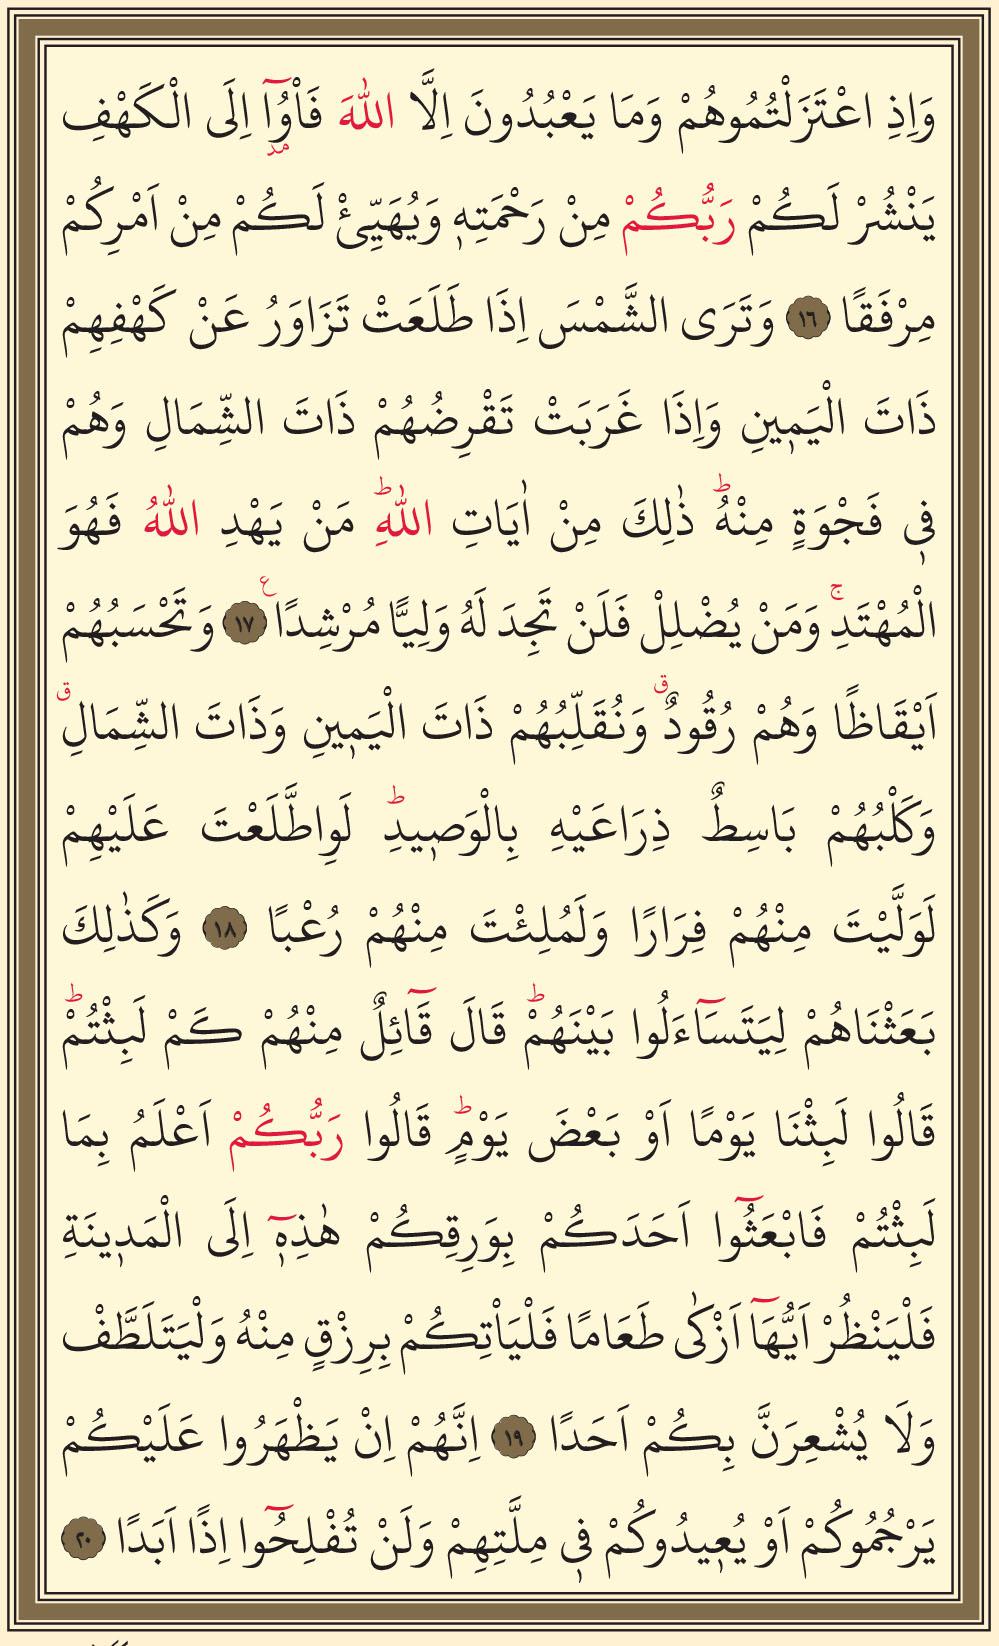 وَاِذِ اعْتَزَلْتُمُوهُمْ وَمَا يَعْبُدُونَ اِلَّا اللّٰهَ فَأْوُٓ۫ا اِلَى الْكَهْفِ
يَنْشُرْ لَكُمْ رَبُّكُمْ مِنْ رَحْمَتِه۪ وَيُهَيِّئْ لَكُمْ مِنْ اَمْرِكُمْ
مِرْفَقًا ﴿١٦﴾ وَتَرَى الشَّمْسَ اِذَا طَلَعَتْ تَزَاوَرُ عَنْ كَهْفِهِمْ
ذَاتَ الْيَم۪ينِ وَاِذَا غَرَبَتْ تَقْرِضُهُمْ ذَاتَ الشِّمَالِ وَهُمْ
ف۪ي فَجْوَةٍ مِنْهُؕ ذٰلِكَ مِنْ اٰيَاتِ اللّٰهِؕ مَنْ يَهْدِ اللّٰهُ فَهُوَ
الْمُهْتَدِۚ وَمَنْ يُضْلِلْ فَلَنْ تَجِدَ لَهُ وَلِيًّا مُرْشِدًا۟ ﴿١٧﴾ وَتَحْسَبُهُمْ
اَيْقَاظًا وَهُمْ رُقُودٌۗ وَنُقَلِّبُهُمْ ذَاتَ الْيَم۪ينِ وَذَاتَ الشِّمَالِۗ
وَكَلْبُهُمْ بَاسِطٌ ذِرَاعَيْهِ بِالْوَص۪يدِؕ لَوِاطَّلَعْتَ عَلَيْهِمْ
لَوَلَّيْتَ مِنْهُمْ فِرَارًا وَلَمُلِئْتَ مِنْهُمْ رُعْبًا ﴿١٨﴾ وَكَذٰلِكَ
بَعَثْنَاهُمْ لِيَتَسَٓاءَلُوا بَيْنَهُمْؕ قَالَ قَٓائِلٌ مِنْهُمْ كَمْ لَبِثْتُمْؕ
قَالُوا لَبِثْنَا يَوْمًا اَوْ بَعْضَ يَوْمٍؕ قَالُوا رَبُّكُمْ اَعْلَمُ بِمَا
لَبِثْتُمْ فَابْعَثُٓوا اَحَدَكُمْ بِوَرِقِكُمْ هٰذِه۪ٓ اِلَى الْمَد۪ينَةِ
فَلْيَنْظُرْ اَيُّهَٓا اَزْكٰى طَعَامًا فَلْيَأْتِكُمْ بِرِزْقٍ مِنْهُ وَلْيَتَلَطَّفْ
وَلَا يُشْعِرَنَّ بِكُمْ اَحَدًا ﴿١٩﴾ اِنَّهُمْ اِنْ يَظْهَرُوا عَلَيْكُمْ
يَرْجُمُوكُمْ اَوْ يُع۪يدُوكُمْ ف۪ي مِلَّتِهِمْ وَلَنْ تُفْلِحُٓوا اِذًا اَبَدًا ﴿٢٠﴾